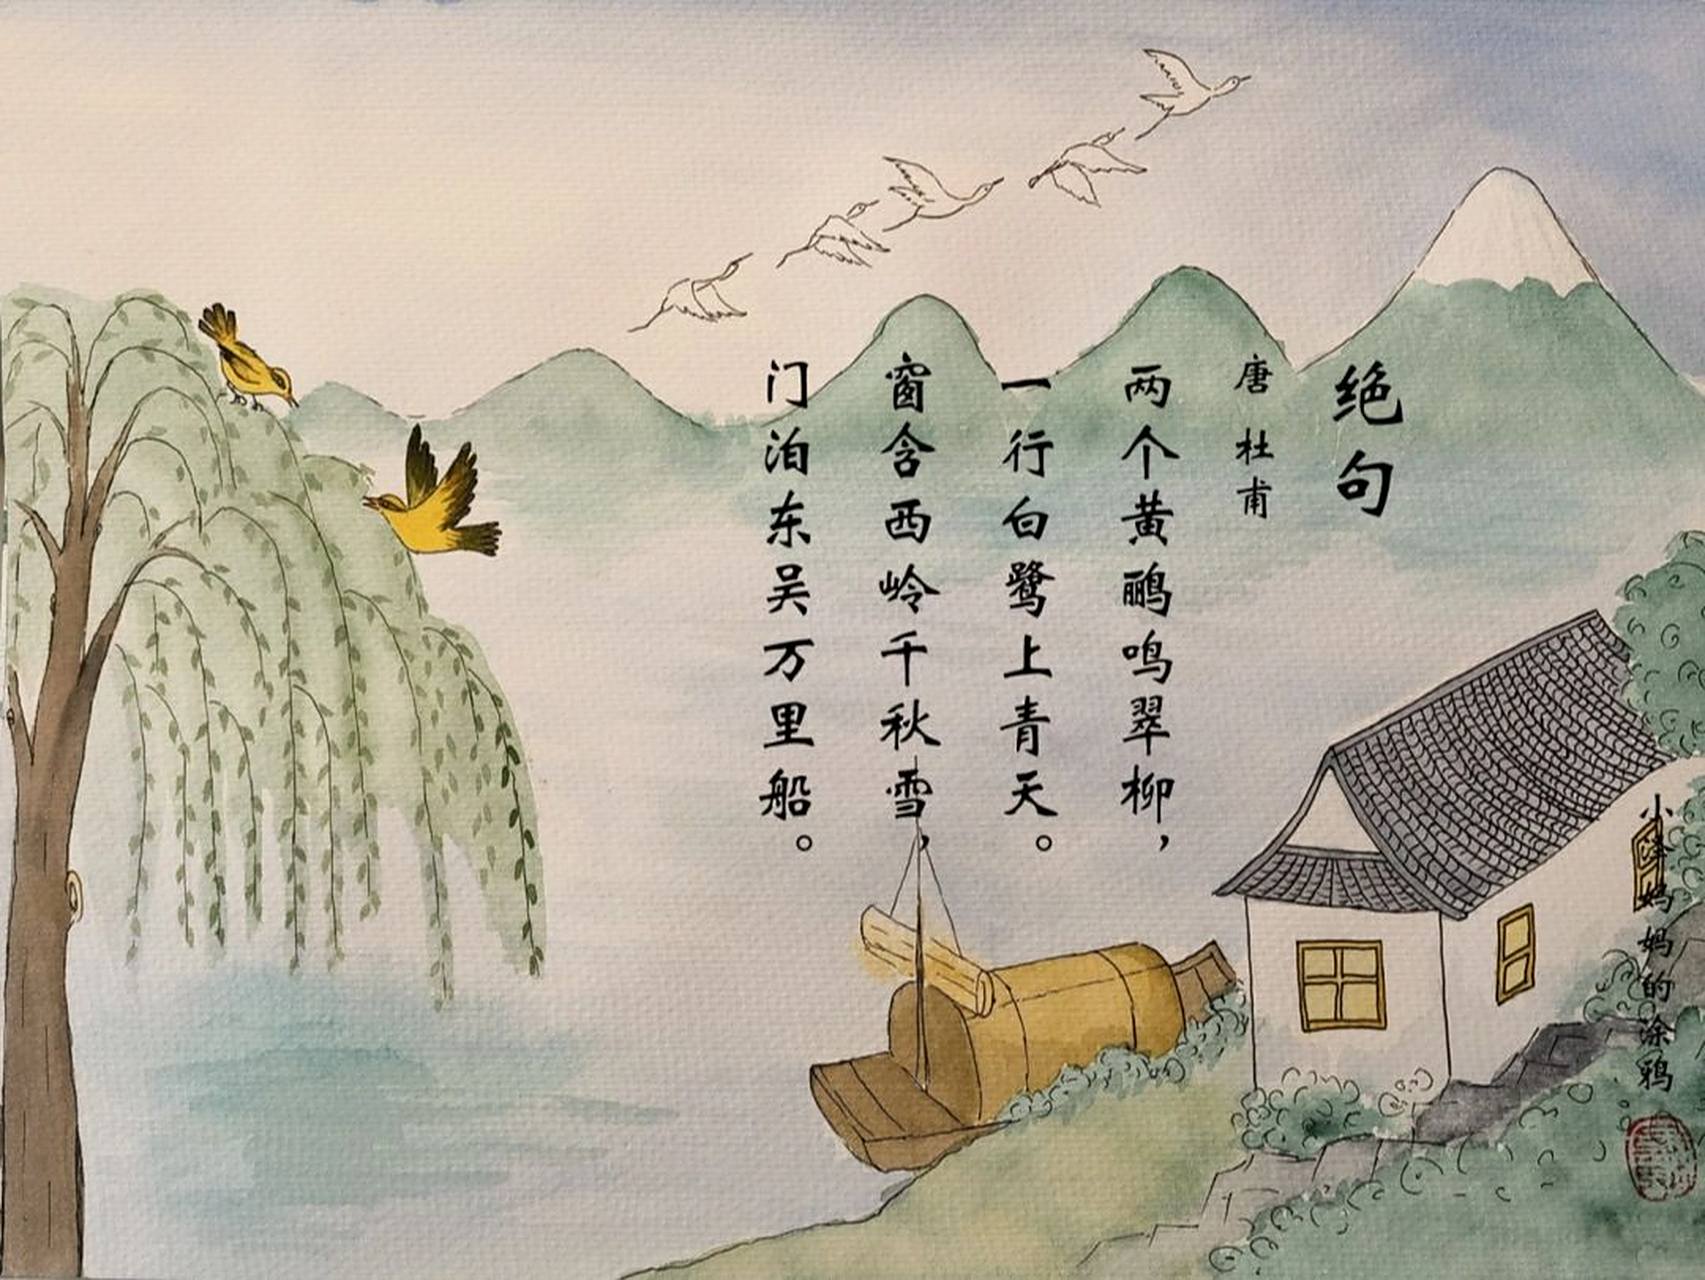 绝句
唐 杜甫
两个黄鹂鸣翠柳，
一行白鹭上青天。
窗含西岭千秋雪，
门泊东吴万里船。
小 妈妈的涂鸦